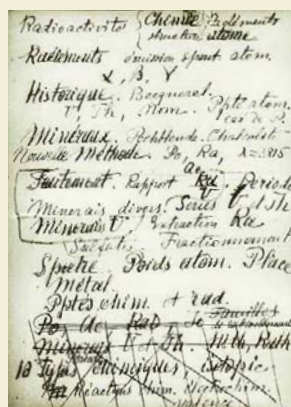 Radioactivité { Chimie Raéléments
structure atome
Raéléments émission spont atom.
α, β, γ
Historique. Becquerel.
U, Th, Nom. Ppté atom.
Minéraux. Pechblende.
Nouvelle Méthode. Po, Ra, λ = 3815
Traitement. Rapport Ra/U. Période
Minerais divers. Séries U et Th
Minerais U Extraction Ra
Sulfates. Fractionnement
Spectre. Poids atom. Place
Métal
Pptés chim. et rad.
Po, Ac, Rad, Io
Minéraux U et Th.
10 Types chimiques, isotopie
Réactions chim. électrochim.